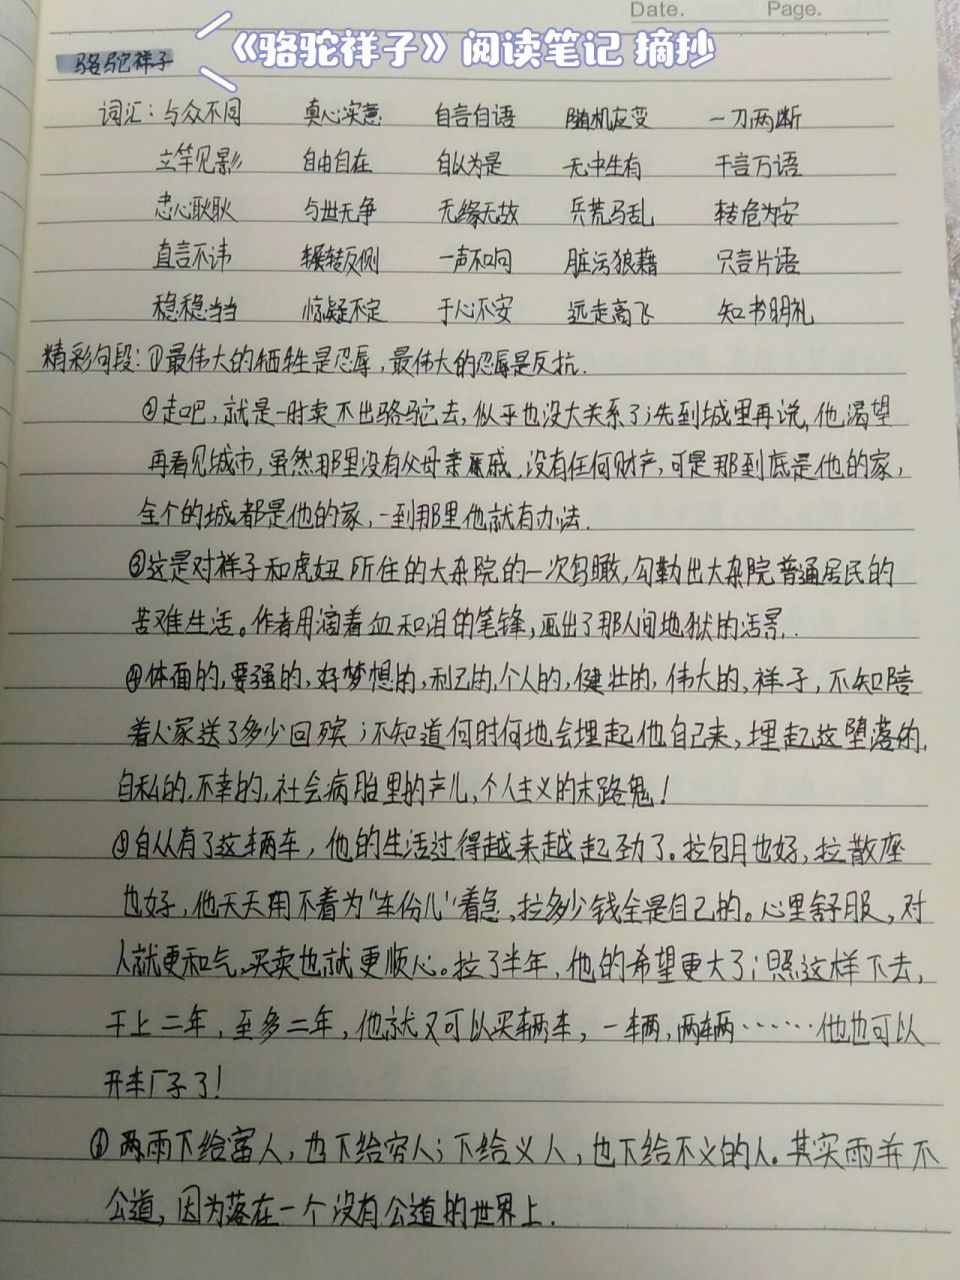 Date.
Page.
《骆驼祥子》阅读笔记 摘抄
骆驼祥子
词汇：与众不同 真心实意 自言自语 随机应变 一刀两断
立竿见影 自由自在 自以为是 无中生有 千言万语
忠心耿耿 与世无争 无缘无故 兵荒马乱 转危为安
直言不讳 辗转反侧 一声不问 脏污狼藉 只言片语
稳稳当当 惊疑不定 于心不安 远走高飞 知书明礼
精彩句段：①最伟大的牺牲是忍辱，最伟大的忍辱是反抗.
②走吧，就是一时卖不出骆驼去，似乎也没大关系了；先到城里再说，他渴望
再看见城市，虽然那里没有父母亲戚，没有任何财产，可是那到底是他的家，
全个的城都是他的家，一到那里他就有办法.
③这是对祥子和虎妞所住的大杂院的一次鸟瞰，勾勒出大杂院普通居民的
苦难生活。作者用滴着血和泪的笔锋，画出了那人间地狱的活景.
④体面的，要强的，好梦想的，利己的，个人的，健壮的，伟大的，祥子，不知陪
着人家送了多少回殡；不知道何时何地会埋起他自己来，埋起这堕落的，
自私的，不幸的，社会病胎里的产儿，个人主义的末路鬼！
⑤自从有了这辆车，他的生活过得越来越起劲了。拉包月也好，拉散座
也好，他天天用不着为“车份儿”着急，拉多少钱全是自己的。心里舒服，对
人就更和气，买卖也就更顺心。拉了半年，他的希望更大了；照这样下去，
干上二年，至多二年，他就又可以买辆车，一辆，两辆……他也可以
开车厂子了！
⑥雨下给富人，也下给穷人；下给义人，也下给不义的人。其实雨并不
公道，因为落在一个没有公道的世界上.